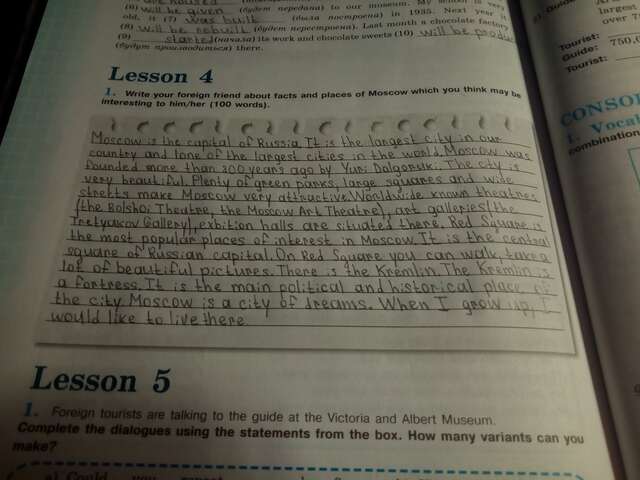 (6) will be given (будет передана) to our museum. My school is very
old, it (7) was built (была построена) in 1935. Next year it
(8) will be rebuilt (будет перестроена). Last month a chocolate factory
(9) started (начала) its work and chocolate sweets (10) will be produc
(будут производиться) there.
Lesson 4
1. Write your foreign friend about facts and places of Moscow which you think may be
interesting to him/her (100 words).
Moscow is the capital of Russia. It is the largest city in our
country and lone of the largest cities in the world. Moscow was
founded more than 300 years ago by Yuri Dolgoruki. The city is
very beautiful. Plenty of green parks, large squares and wide
stretts make Moscow very attractive. Worldwide known theatres
(the Bolshoi Theatre, the Moscow Art Theatre), art galleries (the
Tretyakov Gallery), exbition halls are situated there. Red Square is
the most popular places of interest in Moscow. It is the central
square of Russian capital. On Red Square you can walk, take a
lot of beautiful pictures. There is the Kremlin. The Kremlin is
a fortress. It is the main political and historical place of
the city. Moscow is a city of dreams. When I grow up, I
would like to live there
Lesson 5
1. Foreign tourists are talking to the guide at the Victoria and Albert Museum.
Complete the dialogues using the statements from the box. How many variants can you
make?
larges
over 7
Tourist:
Guide: 750,0
Tourist:
CONSO
1. Vocab
combination